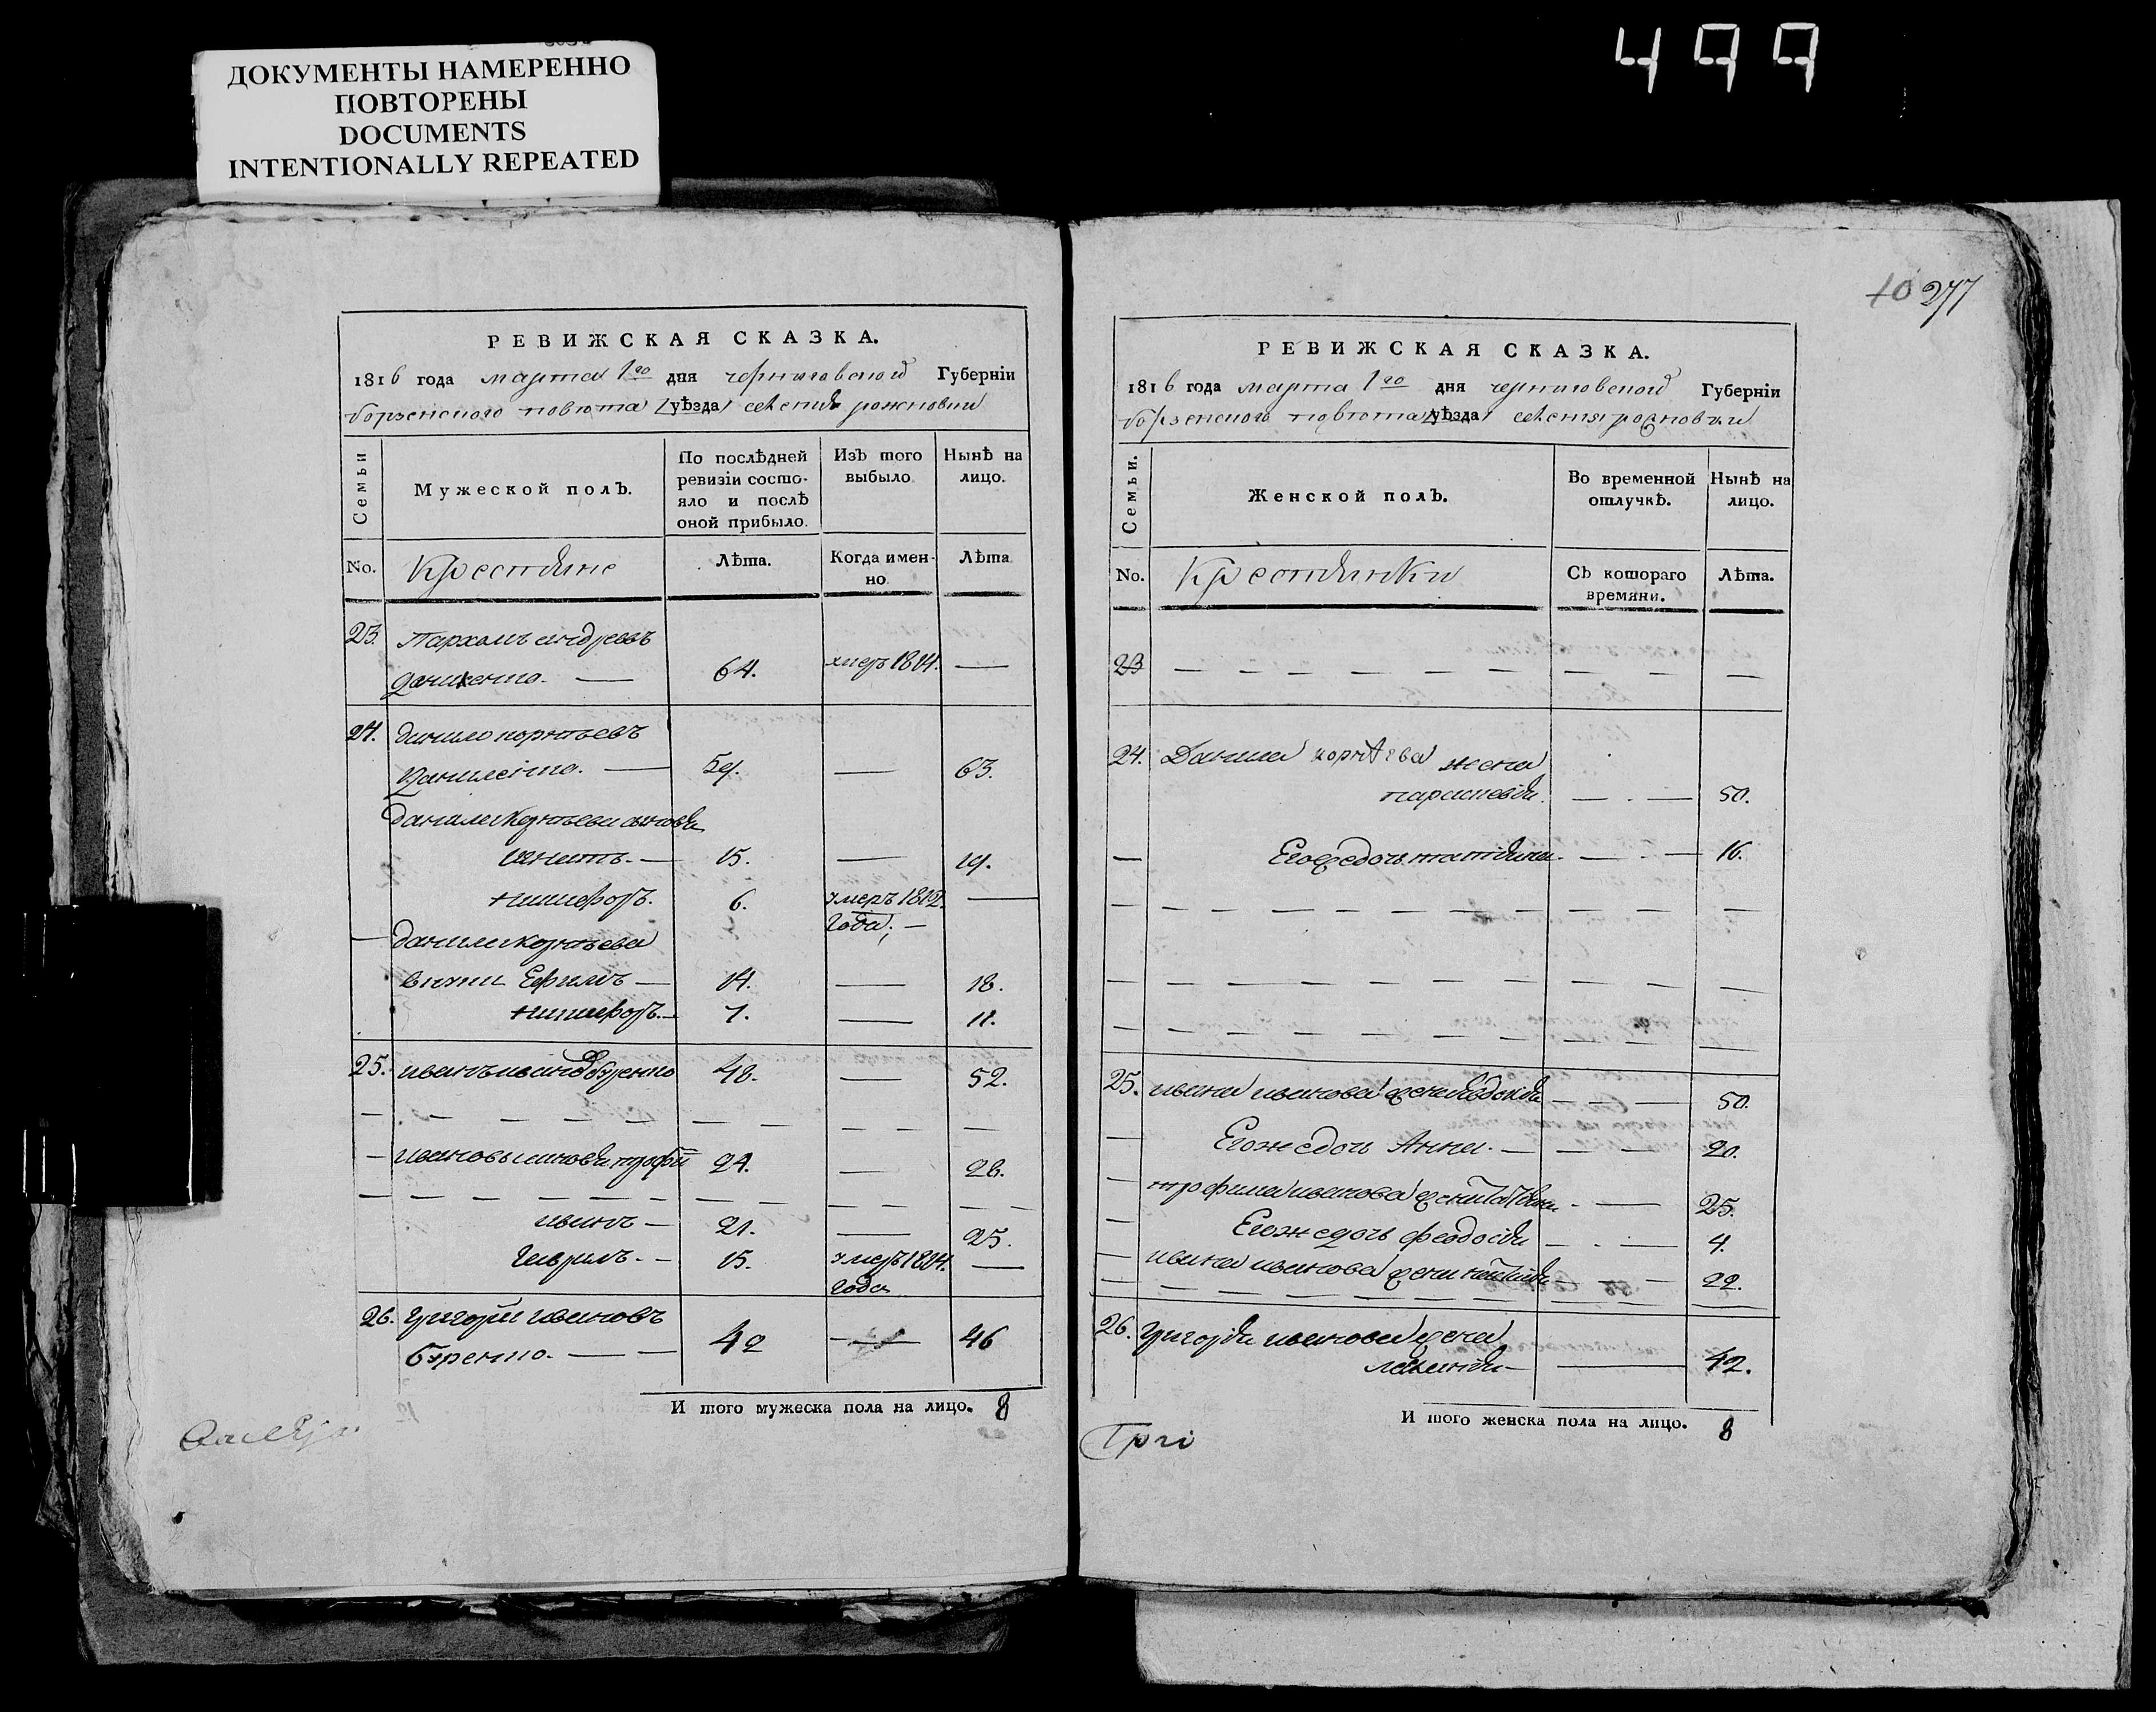 499
ДОКУМЕНТЫ НАМЕРЕННО
ПОВТОРЕНЫ
DOCUMENTS
INTENTIONALLY REPEATED
РЕВИЖСКАЯ СКАЗКА.
1816 года марта 1го дня черниговской Губерніи
борзенского повѣта /уѣзда/
Семьи
Мужеской полЪ.
По послѣдней
ревизіи состо-
яло и послѣ
оной прибыло.
ИзЪ того
выбыло
Нынѣ на
лицо.
No.
Крестьяне
Лѣта.
Когда имен-
но
Лѣта
23. Пархомъ андреевъ
64. умеръ 1814. —
24. данило корнѣевъ
Даниленко. — 59. — 63.
данила Корнѣева сыновья
Игнатъ. — 15. — 19.
никифоръ. 6. умеръ 1812. —
года; —
— данила корнѣева
внуки Ефимъ — 14. — 18.
никифоръ. — 7. — 11.
25. иванъ ивановъ 48. — 52.
— ивановы сыновья трофим 24. — 28.
иванъ — 21. — 25.
гаврилъ. — 15. умеръ 1814. —
года
26. григорій ивановъ
42 — 46
И того мужеска пола на лицо. 8
10 277
РЕВИЖСКАЯ СКАЗКА.
1816 года марта 1го дня черниговской Губерніи
борзенского повѣта /уѣзда/
Семьи.
Женской полЪ.
Во временной
отлучкѣ.
Нынѣ на
лицо.
No.
Крестьянки
СЪ котораго
времяни.
Лѣта.
23 — — — — — — — — —
24. Данила корнѣева жена
параскевія. — . — 50.
— Его ж дочь татіяна. — . — 16.
25. ивана иванова жена Евдокія — — — 50.
— Его ж дочь Анна. — — — 20.
— трофима иванова жена — 25.
— Его ж дочь феодосія — . — 4.
— ивана иванова жена — 22.
26. григорія иванова жена
— 42.
И того женска пола на лицо. 8
Гри